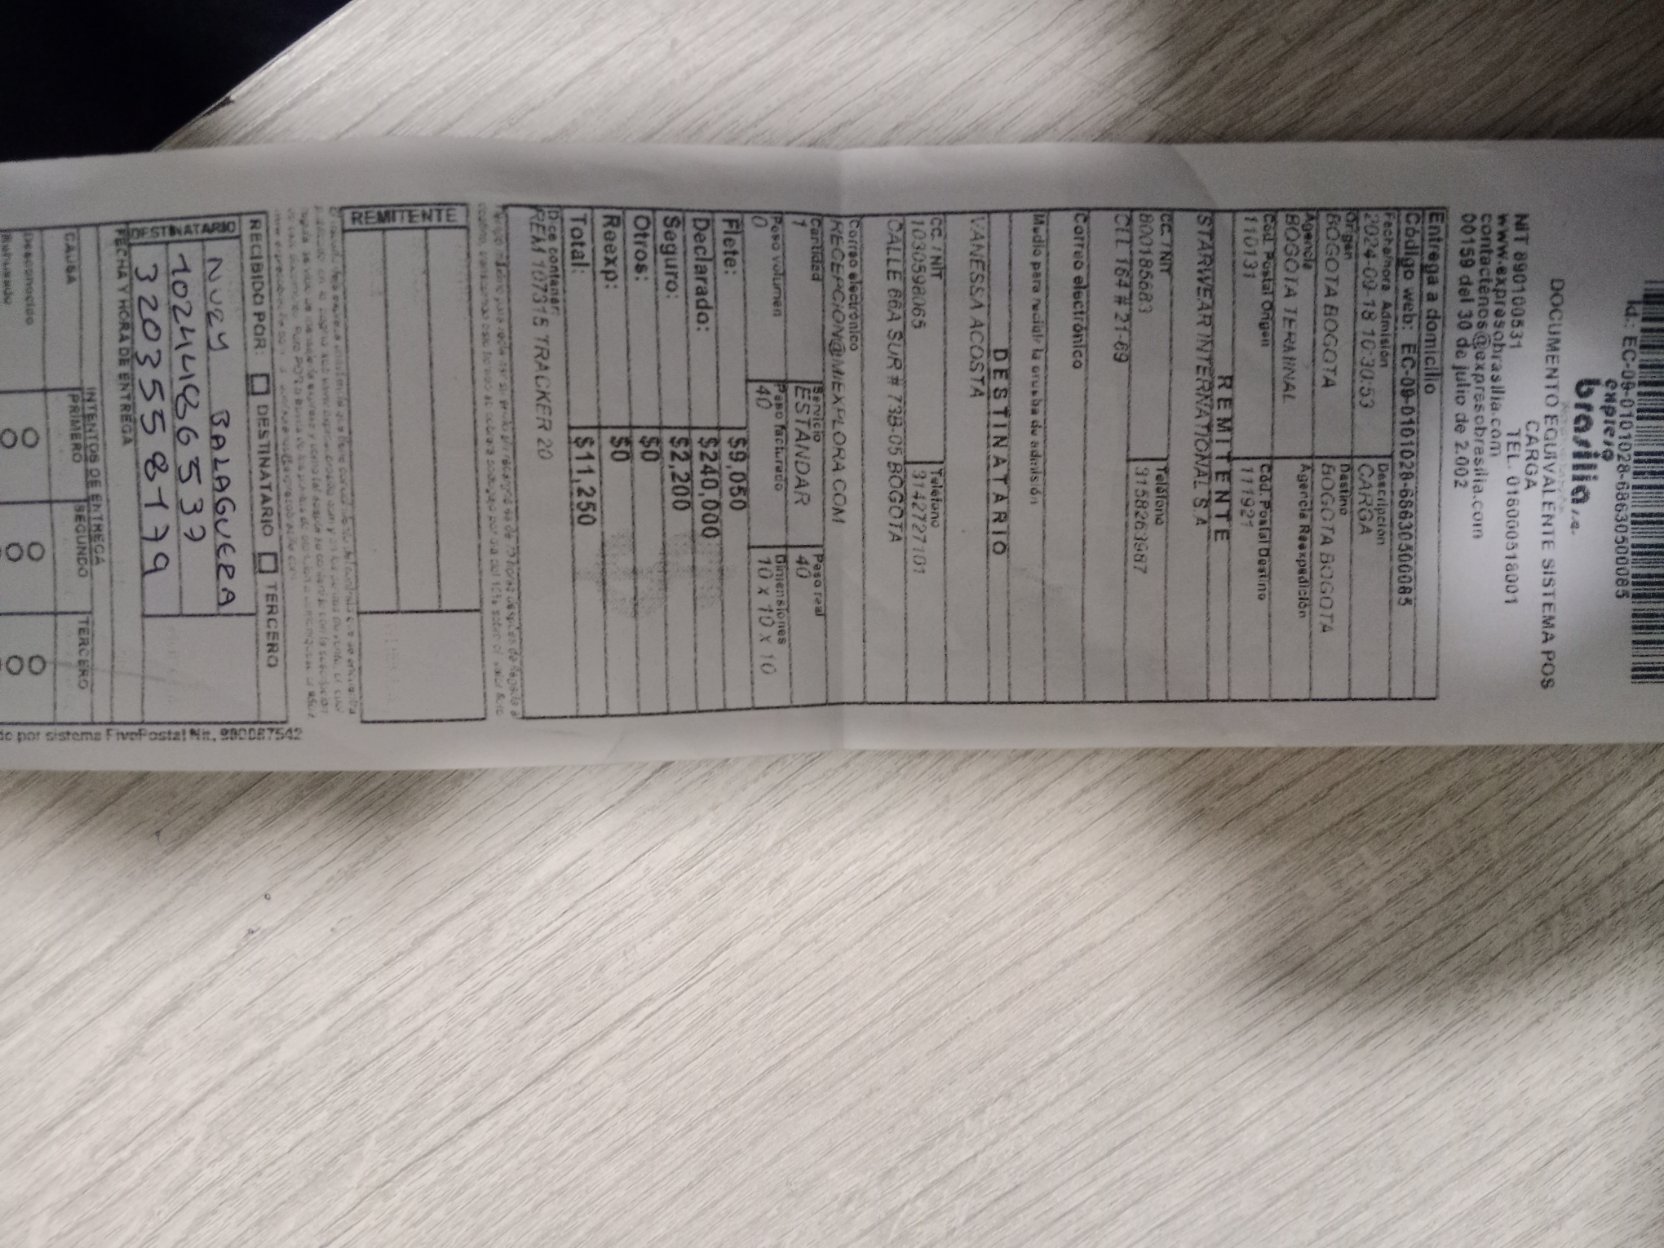 Id.: EC-09-0101028-68630500085
expreso
brasilia s.a.
DOCUMENTO EQUIVALENTE SISTEMA POS
CARGA
NIT 890100531 TEL. 018000518001
www.expresobrasilia.com
contactenos@expresobrasilia.com
00159 del 30 de julio de 2.002
Entrega a domicilio
Código web: EC-09-0101028-68630500085
Fecha/hora Admisión Descripción
2024-09-18 10:30:53 CARGA
Origen Destino
BOGOTA BOGOTA BOGOTA BOGOTA
Agencia Agencia Reexpedición
BOGOTA TERMINAL
Cód. Postal Origen Cód. Postal Destino
110131 111921
REMITENTE
STARWEAR INTERNATIONAL S A
CC. / NIT Teléfono
800185683 3158263987
CLL 164 # 21-69
Correo electrónico
Medio para recibir la prueba de admisión
DESTINATARIO
VANESSA ACOSTA
CC. / NIT Teléfono
1030598065 3142727101
CALLE 66A SUR # 73B-05 BOGOTA
Correo electrónico
RECEPCION@MIEXPLORA.COM
Cantidad Servicio Peso real
1 ESTANDAR 40
Peso volumen Peso facturado Dimensiones
0 40 10 x 10 x 10
Flete: $9,050
Declarado: $240,000
Seguro: $2,200
Otros: $0
Reexp: $0
Total: $11,250
Dice contener:
REM 107315 TRACKER 20
REMITENTE
RECIBIDO POR: DESTINATARIO TERCERO
DESTINATARIO
NURY BALAGUERA
1024486537
3203558179
FECHA Y HORA DE ENTREGA
INTENTOS DE ENTREGA
CAUSA PRIMERO SEGUNDO TERCERO
Desconocido
Rehusado
do por sistema FivePostal Nit. 900087542